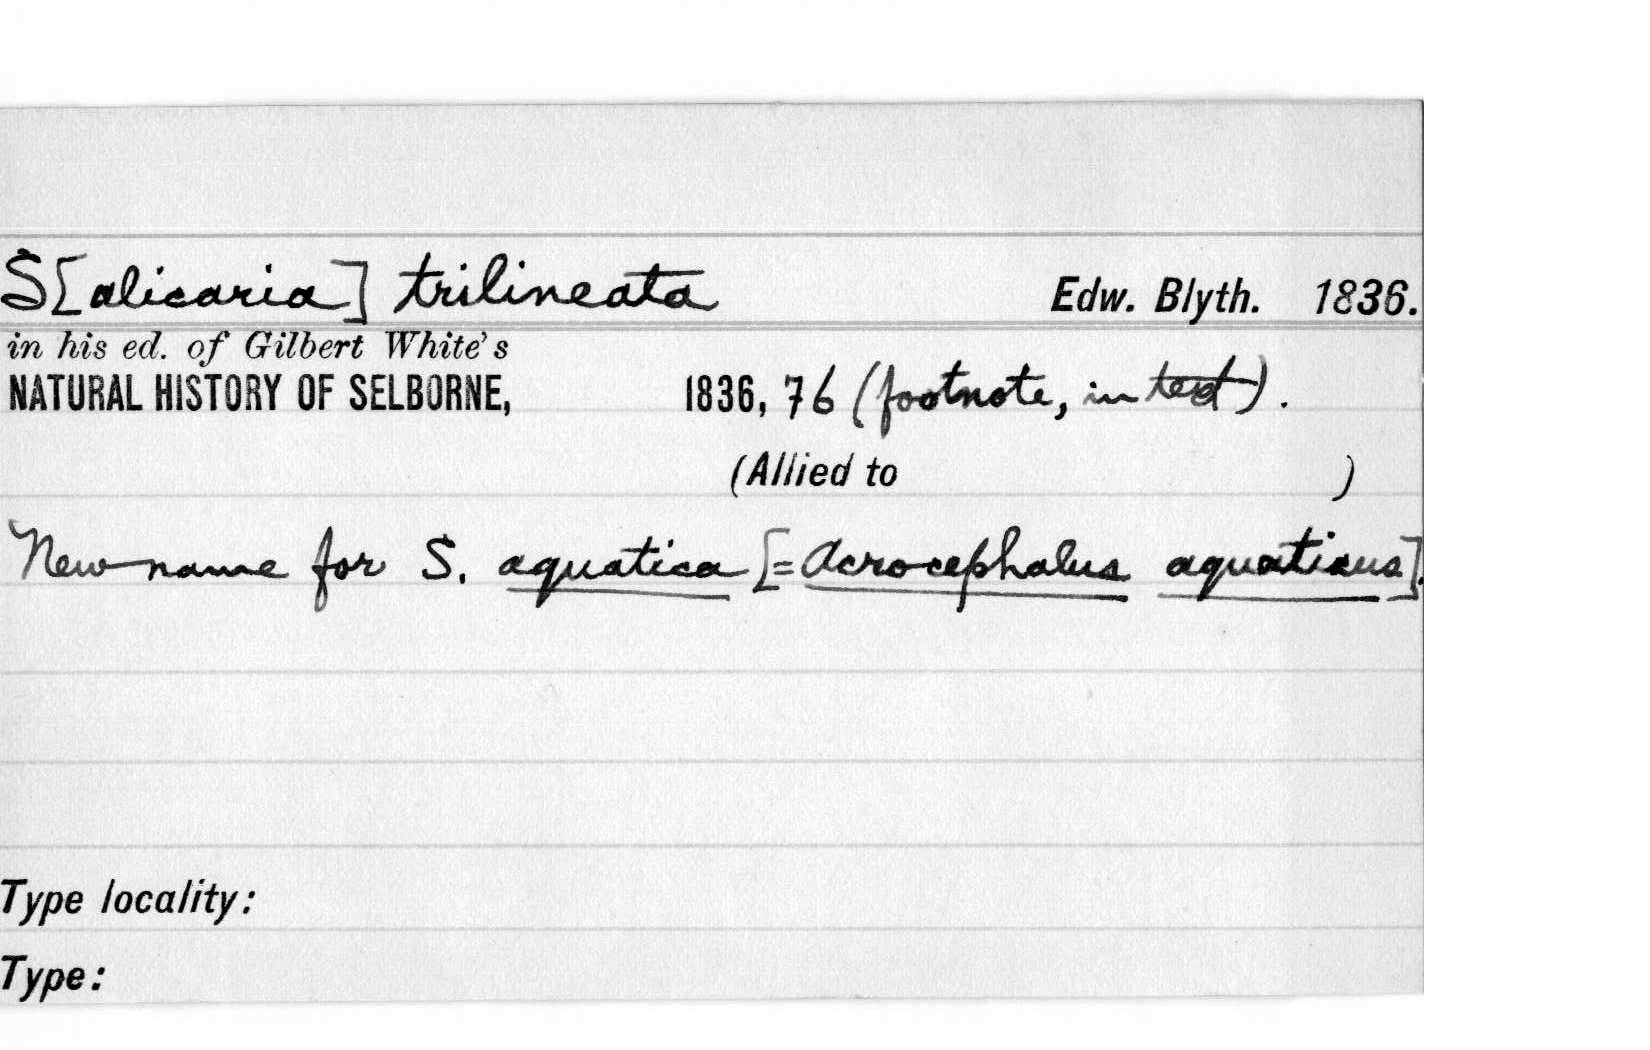 S[alicaria] trilineata Edw. Blyth. 1836.
in his ed. of Gilbert White's
NATURAL HISTORY OF SELBORNE, 1836, 76 (footnote, in text).
(Allied to )
New name for S. aquatica [= Acrocephalus aquaticus].
Type locality:
Type: